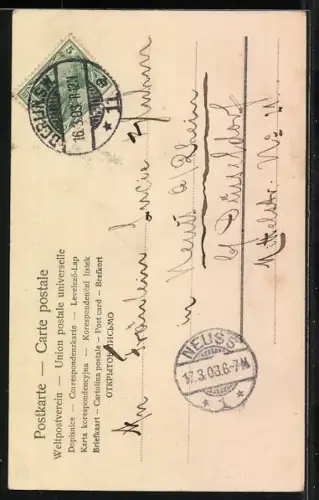 Postkarte — Carte postale
Weltpostverein — Union postale universelle
Dopisnice — Correspondenzkarte — Levelező-Lap
Karta korespondencyjna — Korespondenční lístek
Briefkaart — Cartolina postale — Post card — Brefkort
ОТКРЫТОЕ ПИСЬМО
BERLIN SW
16.3.03 11-12V
* 11 e
5
An
Fräulein Lucie
in Neuss a/Rhein
b/ Düsseldorf
Mittelstr. No 11.
NEUSS
17.3.03.6-7N.
* 1 *